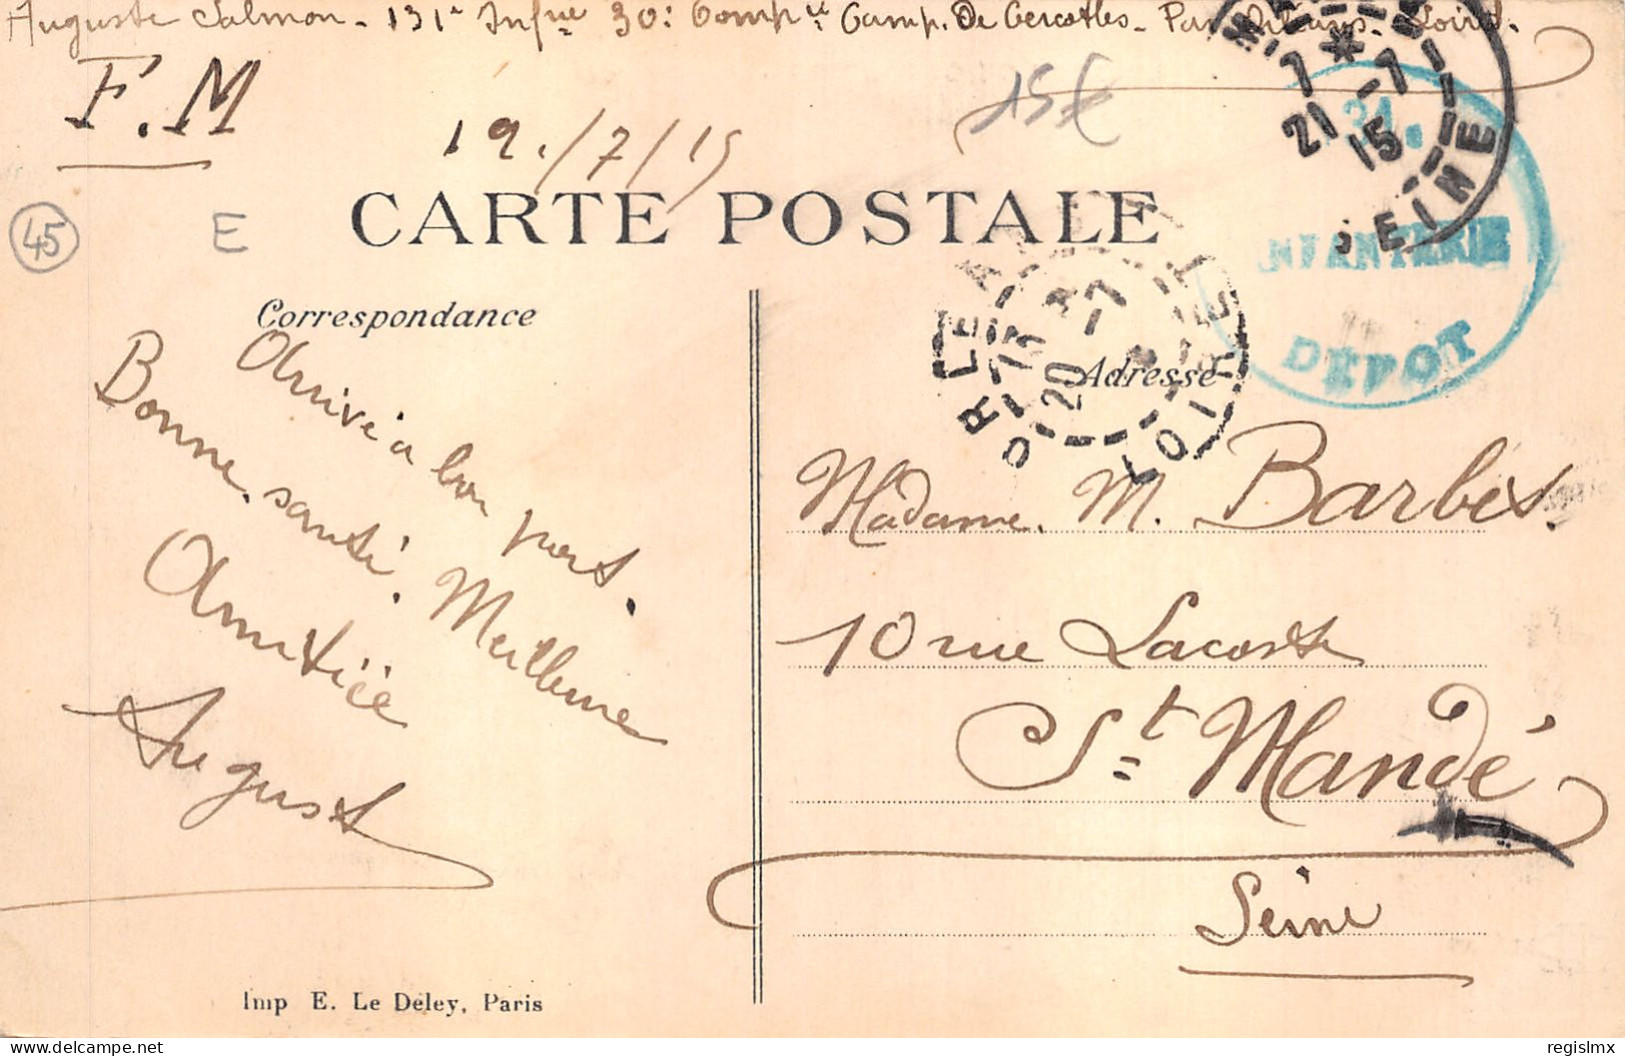 Auguste Salmon - 131e Infie 30e Compie Camp. De Cercottes - Par Orléans - Loiret.
F.M
19./7/15
15€
45
E
CARTE POSTALE
7 *
21 -7
15
SEINE
INFANTERIE
DÉPOT
ORLEA
20 -7
LOIRET
Correspondance
Adresse
Arrivé à bon port.
Bonne santé. Meilleure
Amitiée
August
Madame. M. Barbès.
10 rue Lacoste
St Mandé
Seine
Imp E. Le Deley, Paris
regislmx